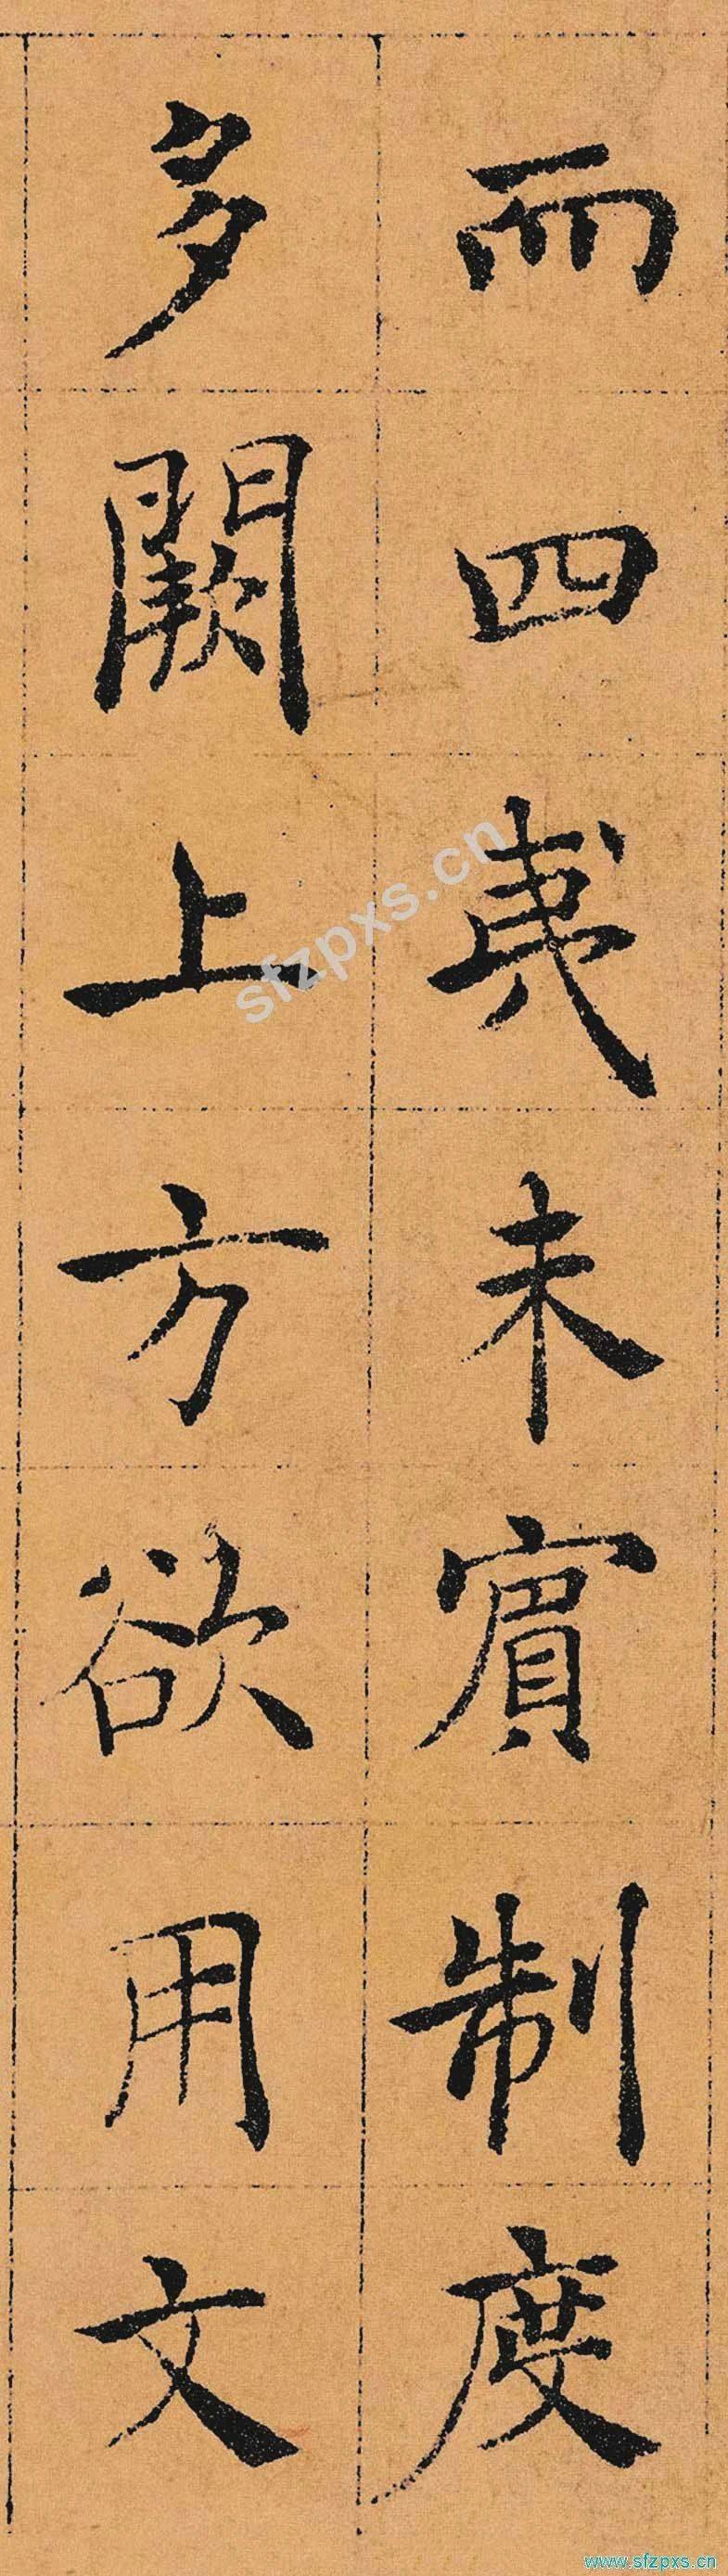 而四夷未賓制度
多闕上方欲用文
sfzpxs.cn
www.sfzpxs.cn